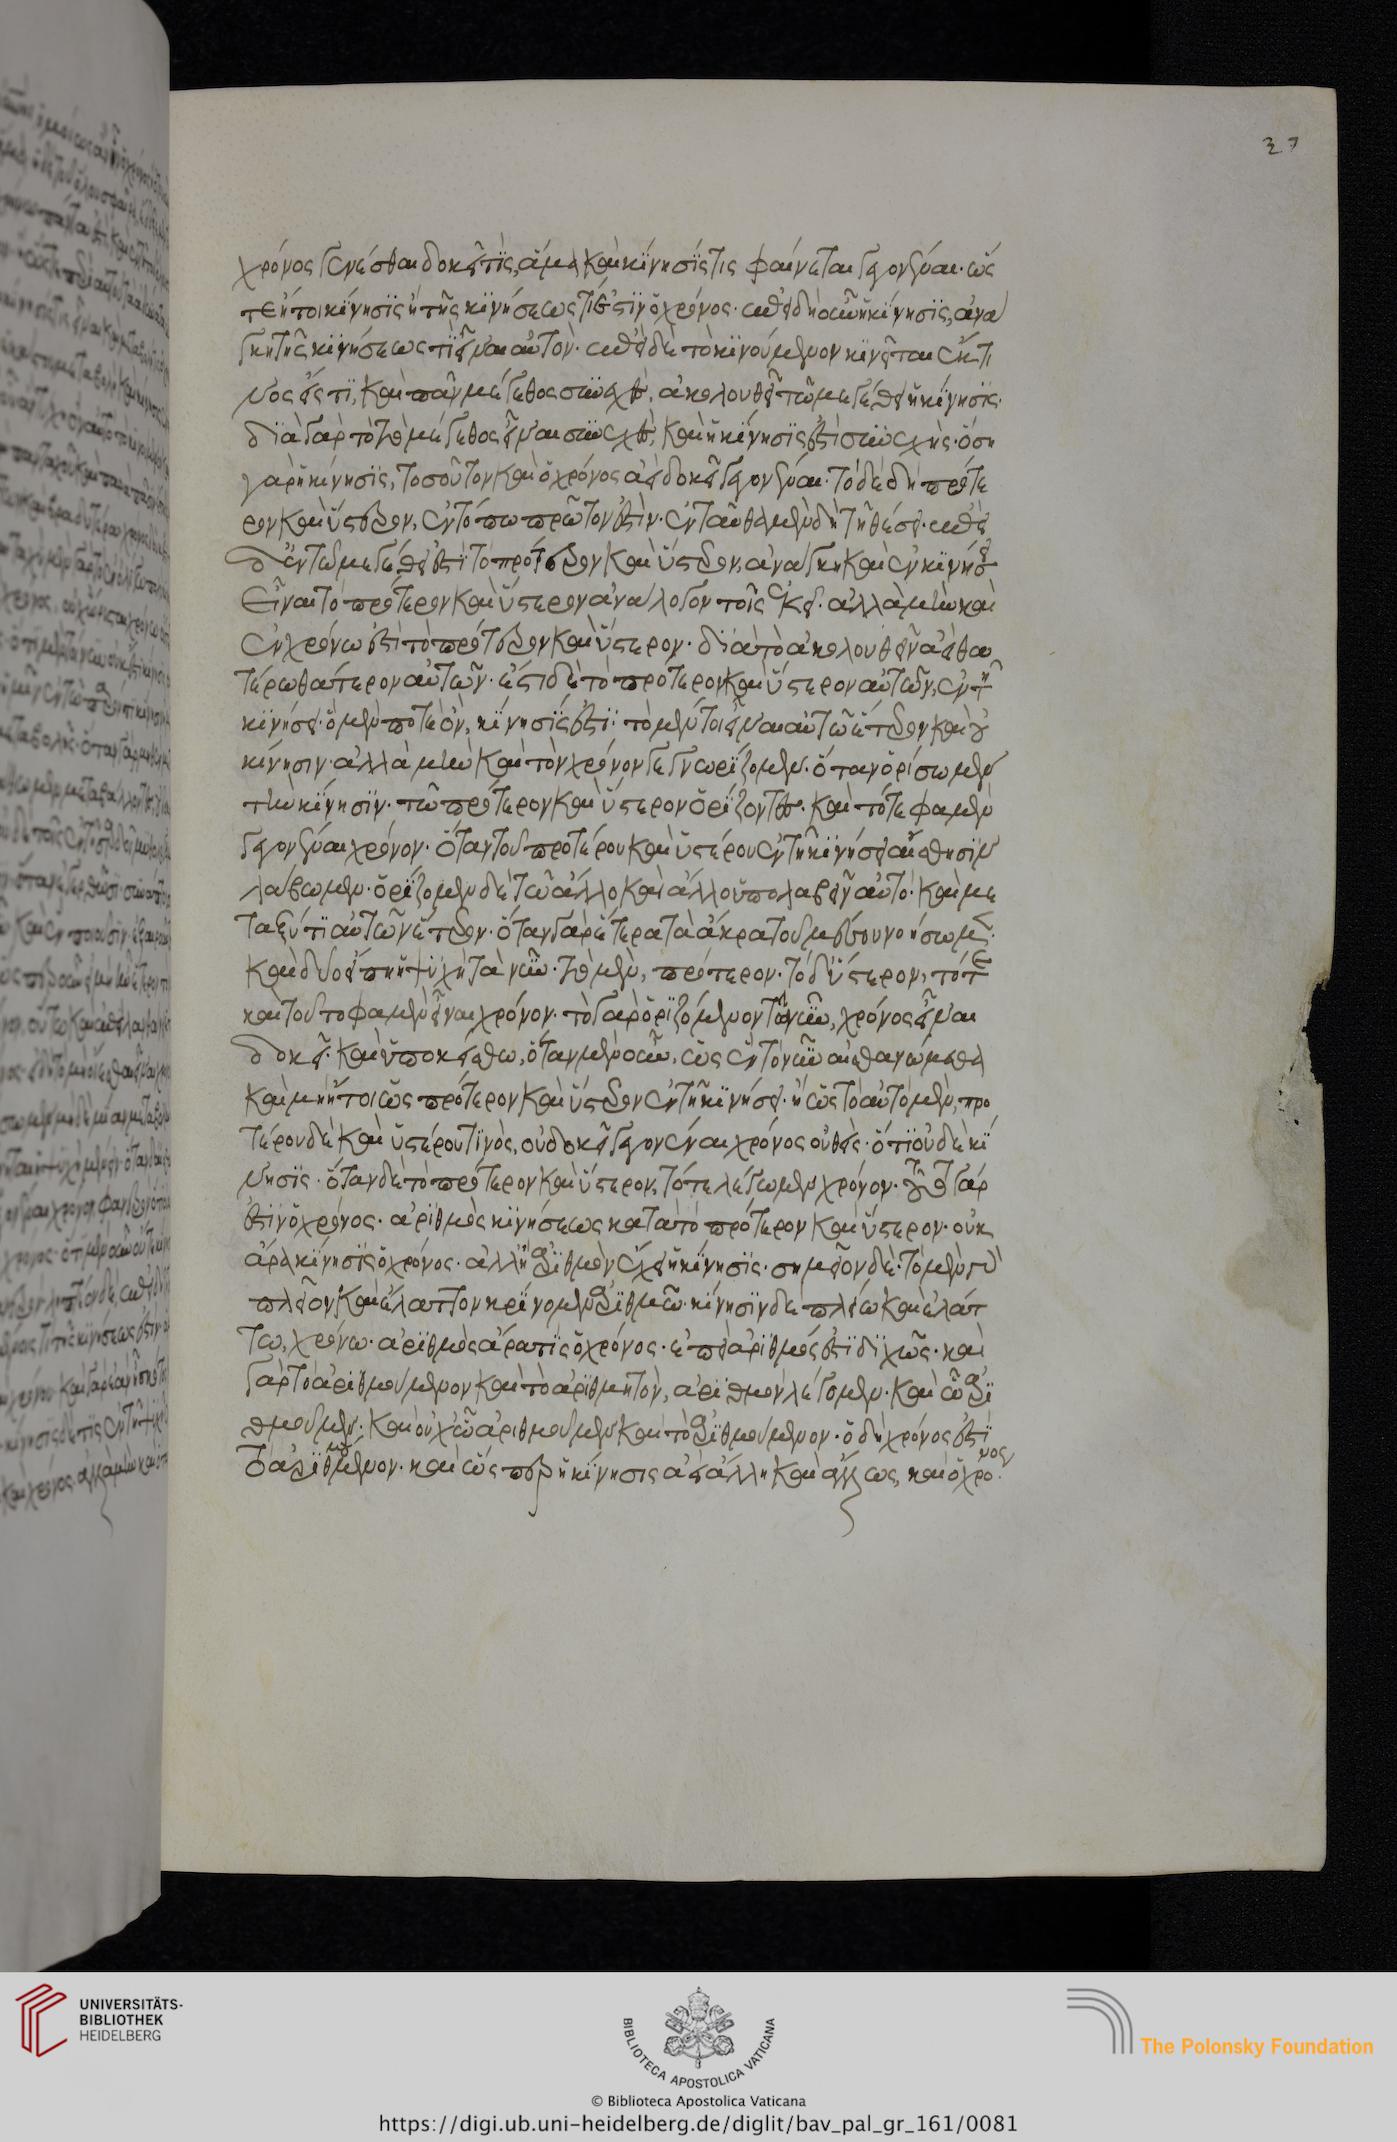 χρόνος γενέσθαι δοκεῖ τὶς, ἅμα καὶ κίνησίς τις φαίνεται γεγονέναι· ὥς
τε ἤτοι κίνησις ἢ τῆς κινήσεως τί ἐστιν ὁ χρόνος· ἐπεὶ δὴ οὖν ἡ κίνησις, ἀνα
γκη τῆς κινήσεως τὶ εἶναι αὐτόν· ἐπεὶ δὲ τὸ κινούμενον κινεῖται ἔκ τι
νος ἔς τι, καὶ πᾶν μέγεθος συνεχές, ἀκολουθεῖ τῶ μεγέθει ἡ κίνησις·
διὰ γὰρ τὸ τὸ μέγεθος εἶναι συνεχές, καὶ ἡ κίνησίς ἐστι συνεχής· ὅση
γὰρ ἡ κίνησις, τοσοῦτον καὶ ὁ χρόνος ἀεὶ δοκεῖ γεγονέναι· τὸ δὲ δὴ πρότε
ρον καὶ ὕστερον, ἐν τόπω πρῶτον ἐστίν· ἐνταῦθα μὲν δὴ τῆ θέσει· ἐπεὶ
δ' ἐν τῶ μεγέθει ἐστὶ τὸ πρότερον καὶ ὕστερον, ἀνάγκη καὶ ἐν κινήσει
εἶναι τὸ πρότερον καὶ ὕστερον ἀνάλογον τοῖς ἐκεῖ· ἀλλὰ μὴν καὶ
ἐν χρόνω ἐστὶ τὸ πρότερον καὶ ὕστερον· διὰ τὸ ἀκολουθεῖν ἀεὶ θα
τέρω θάτερον αὐτῶν· ἔστι δὲ τὸ πρότερον καὶ ὕστερον αὐτῶν, ἐν τῆ
κινήσει· ὃ μέν ποτε ὂν, κίνησίς ἐστι· τὸ μέντοι εἶναι αὐτῶ ἕτερον καὶ οὐ
κίνησιν· ἀλλὰ μὴν καὶ τὸν χρόνον γε γνωρίζομεν· ὅταν ὁρίσωμεν
τὴν κίνησιν· τῶ πρότερον καὶ ὕστερον ὁρίζοντες· καὶ τότε φαμὲν
γεγονέναι χρόνον· ὅταν τοῦ προτέρου καὶ ὑστέρου ἐν τῆ κινήσει αἴσθησιν
λάβωμεν· ὁρίζομεν δὲ τῶ ἄλλο καὶ ἄλλο ὑπολαβεῖν αὐτό· καὶ με
ταξύ τι αὐτῶν ἕτερον· ὅταν γὰρ ἕτερα τὰ ἄκρα τοῦ μέσου νοήσωμεν·
καὶ δύο εἴπη ἡ ψυχὴ τὰ νῦν· τὸ μὲν, πρότερον· τὸ δ' ὕστερον, τότε
καὶ τοῦτο φαμὲν εἶναι χρόνον· τὸ γὰρ ὁριζόμενον τῶ νῦν, χρόνος εἶναι
δοκεῖ· καὶ ὑποκείσθω, ὅταν μὲν οὖν, ὡς ἓν τὸ νῦν αἰσθανώμεθα
καὶ μὴ ἤτοι ὡς πρότερον καὶ ὕστερον ἐν τῆ κινήσει· ἢ ὡς τὸ αὐτὸ μὲν, προ
τέρου δὲ καὶ ὑστέρου τινὸς, οὐ δοκεῖ γεγονέναι χρόνος οὐθείς· ὅτι οὐδὲ κί
νησις· ὅταν δὲ τὸ πρότερον καὶ ὕστερον, τότε λέγωμεν χρόνον· τοῦτο γάρ
ἐστιν ὁ χρόνος· ἀριθμὸς κινήσεως κατὰ τὸ πρότερον καὶ ὕστερον· οὐκ
ἄρα κίνησις ὁ χρόνος· ἀλλ' ἧ ἀριθμὸν ἔχει ἡ κίνησις· σημεῖον δέ· τὸ μὲν γὰρ
πλεῖον καὶ ἔλαττον κρίνομεν ἀριθμῶ· κίνησιν δὲ πλείω καὶ ἐλάτ
τω, χρόνω· ἀριθμὸς ἄρα τὶς ὁ χρόνος· ἐπεὶ ἀριθμός ἐστι διχῶς· καὶ
γὰρ τὸ ἀριθμούμενον καὶ τὸ ἀριθμητὸν, ἀριθμὸν λέγομεν· καὶ ὧ ἀρι
θμοῦμεν· καὶ οὐχ ὧ ἀριθμοῦμεν καὶ τὸ ἀριθμούμενον· ὁ δὴ χρόνος ἐστὶ
τὸ ἀριθμούμενον· καὶ ὥσπερ ἡ κίνησις ἀεὶ ἄλλη καὶ ἄλλως, καὶ ὁ χρόνος
UNIVERSITÄTS-
BIBLIOTHEK
HEIDELBERG
BIBLIOTECA APOSTOLICA VATICANA
© Biblioteca Apostolica Vaticana
The Polonsky Foundation
https://digi.ub.uni-heidelberg.de/diglit/bav_pal_gr_161/0081